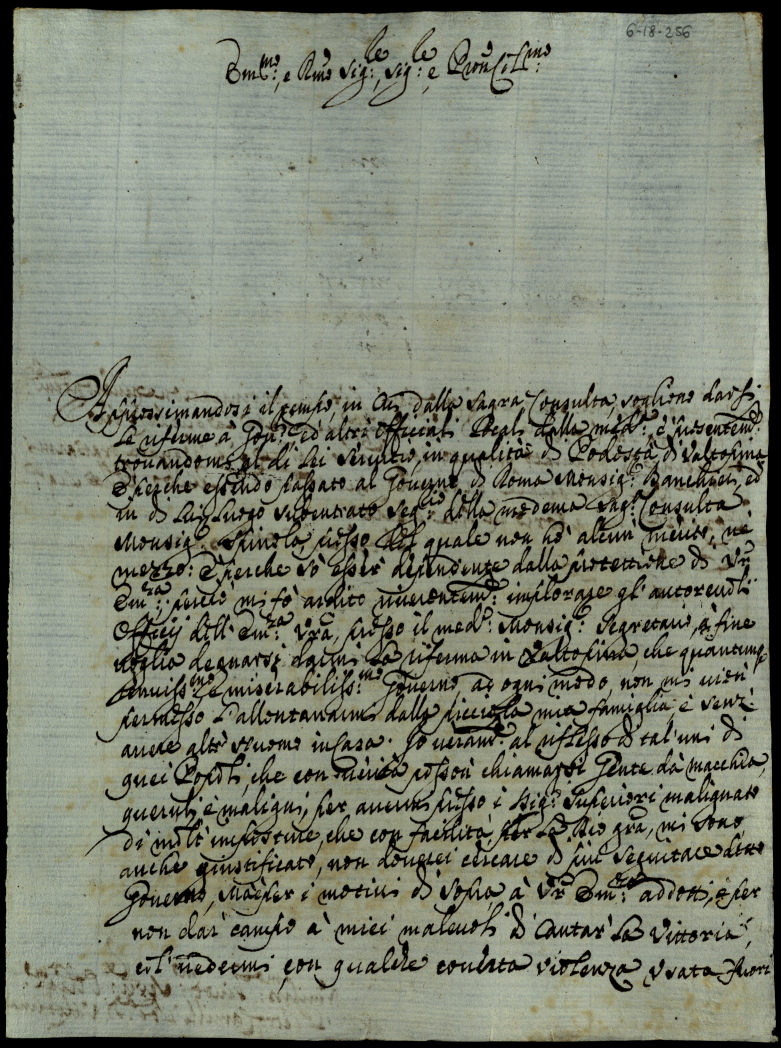 6-18-256
Em.mo, e Rmo Sig.le, Sig.le e Pron Col.mo
Approssimandosi il tempo, in cui dalla Sagra Consulta, sogliono darsi
le riferme à Gov.ri ed altri Officiali locali dalla med.a e presentem.e
trovandomi al di Lei servitio, in qualità di Podestà di Valtopina
E perche essendo passato al Governo di Roma Monsig.r Banchieri, ed
in di Lui luogo subentrato Seg.rio della medema Sag.a Consulta
Monsig.r Spinola, presso del quale non hò alcun merito, ne
mezzo: E perche sò esser dipendente dalla protettione di V.ra
Em.za: perciò mi fò ardito riverentem.e implorare gl'autorevoli
Officij dell'Em.za V.ra, presso il med.o Monsig.r Segretario, à fine
voglia degnarsi darmi la riferma in Valtopina, che quantunq.
tenuiss.mo, e miserabiliss.mo Governo, ad ogni modo, non mi vien
permesso l'allontanarmi dalla piccola mia famiglia, e senz'
avere altr'huomo in casa. Io veram.e al riflesso di tal'uni di
quei Popoli, che con verità posson chiamarsi Gente da macchia,
queruli, e maligni, per avermi presso i Sig.ri Superiori malignato
di molt'imposture, che con facilità, per la Dio gra, mi sono
anche giustificato, non dovrei cercare di più seguitare detto
Governo, Mà per i motivi di sopra à V.ra Em.za addotti, e per
non dar campo à miei malevoli di cantar la Vittoria,
col vedermi, con qualche violenza usata fuori